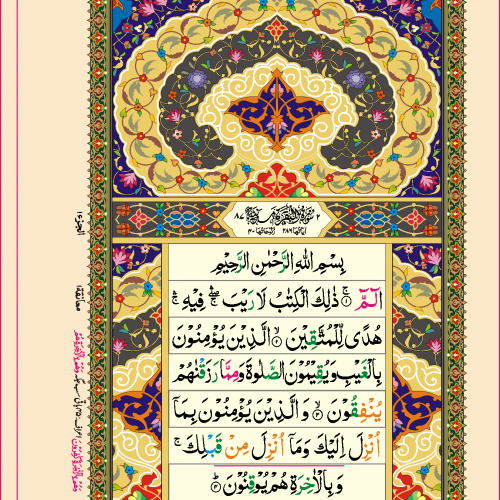 ٢ سُوْرَةُ الْبَقَرَةِ مَدَنِيَّةٌ ٨٧
اٰيَاتُهَا ٢٨٦ رُكُوْعَاتُهَا ٤٠
بِسْمِ اللّٰهِ الرَّحْمٰنِ الرَّحِيْمِ
الٓمّٓ ۚ﴿١﴾ ذٰلِكَ الْكِتٰبُ لَا رَيْبَ ۛۖ فِيْهِ ۛۚ
هُدًى لِّلْمُتَّقِيْنَ ۙ﴿٢﴾ الَّذِيْنَ يُؤْمِنُوْنَ
بِالْغَيْبِ وَيُقِيْمُوْنَ الصَّلٰوةَ وَمِمَّا رَزَقْنٰهُمْ
يُنْفِقُوْنَ ۙ﴿٣﴾ وَالَّذِيْنَ يُؤْمِنُوْنَ بِمَاۤ
اُنْزِلَ اِلَيْكَ وَمَاۤ اُنْزِلَ مِنْ قَبْلِكَ ۚ
وَبِالْاٰخِرَةِ هُمْ يُوْقِنُوْنَ ؕ﴿٤﴾
الجزء ١
معانقة ١